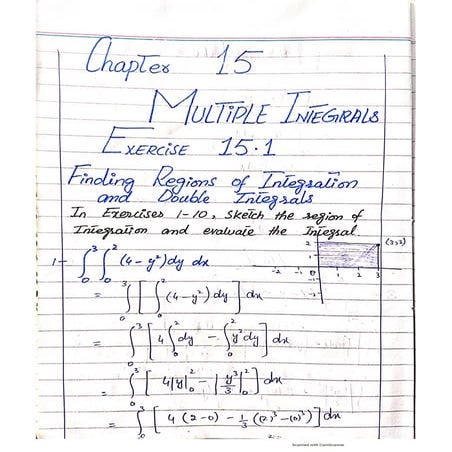 Chapter 15
MULTIPLE INTEGRALS
EXERCISE 15.1
Finding Regions of Integration
and Double Integrals
In Exercises 1-10, Sketch the region of
Integration and evaluate the Integral
1- ∫₀³ ∫₀² (4 - y²) dy dx
= ∫₀³ [ ∫₀² (4 - y²) dy ] dx
= ∫₀³ [ 4 ∫₀² dy - ∫₀² y² dy ] dx
= ∫₀³ [ 4|y|₀² - |y³/3|₀² ] dx
= ∫₀³ [ 4 (2-0) - 1/3 ((2)³ - (0)³) ] dx
(3,2)
2
1
-2 -1 0 1 2 3
-2
Scanned with CamScanner